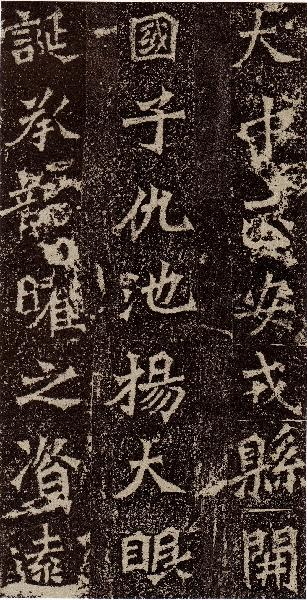 大中安戎縣開
國子仇池揚大眼
誕承龍曜之資遠